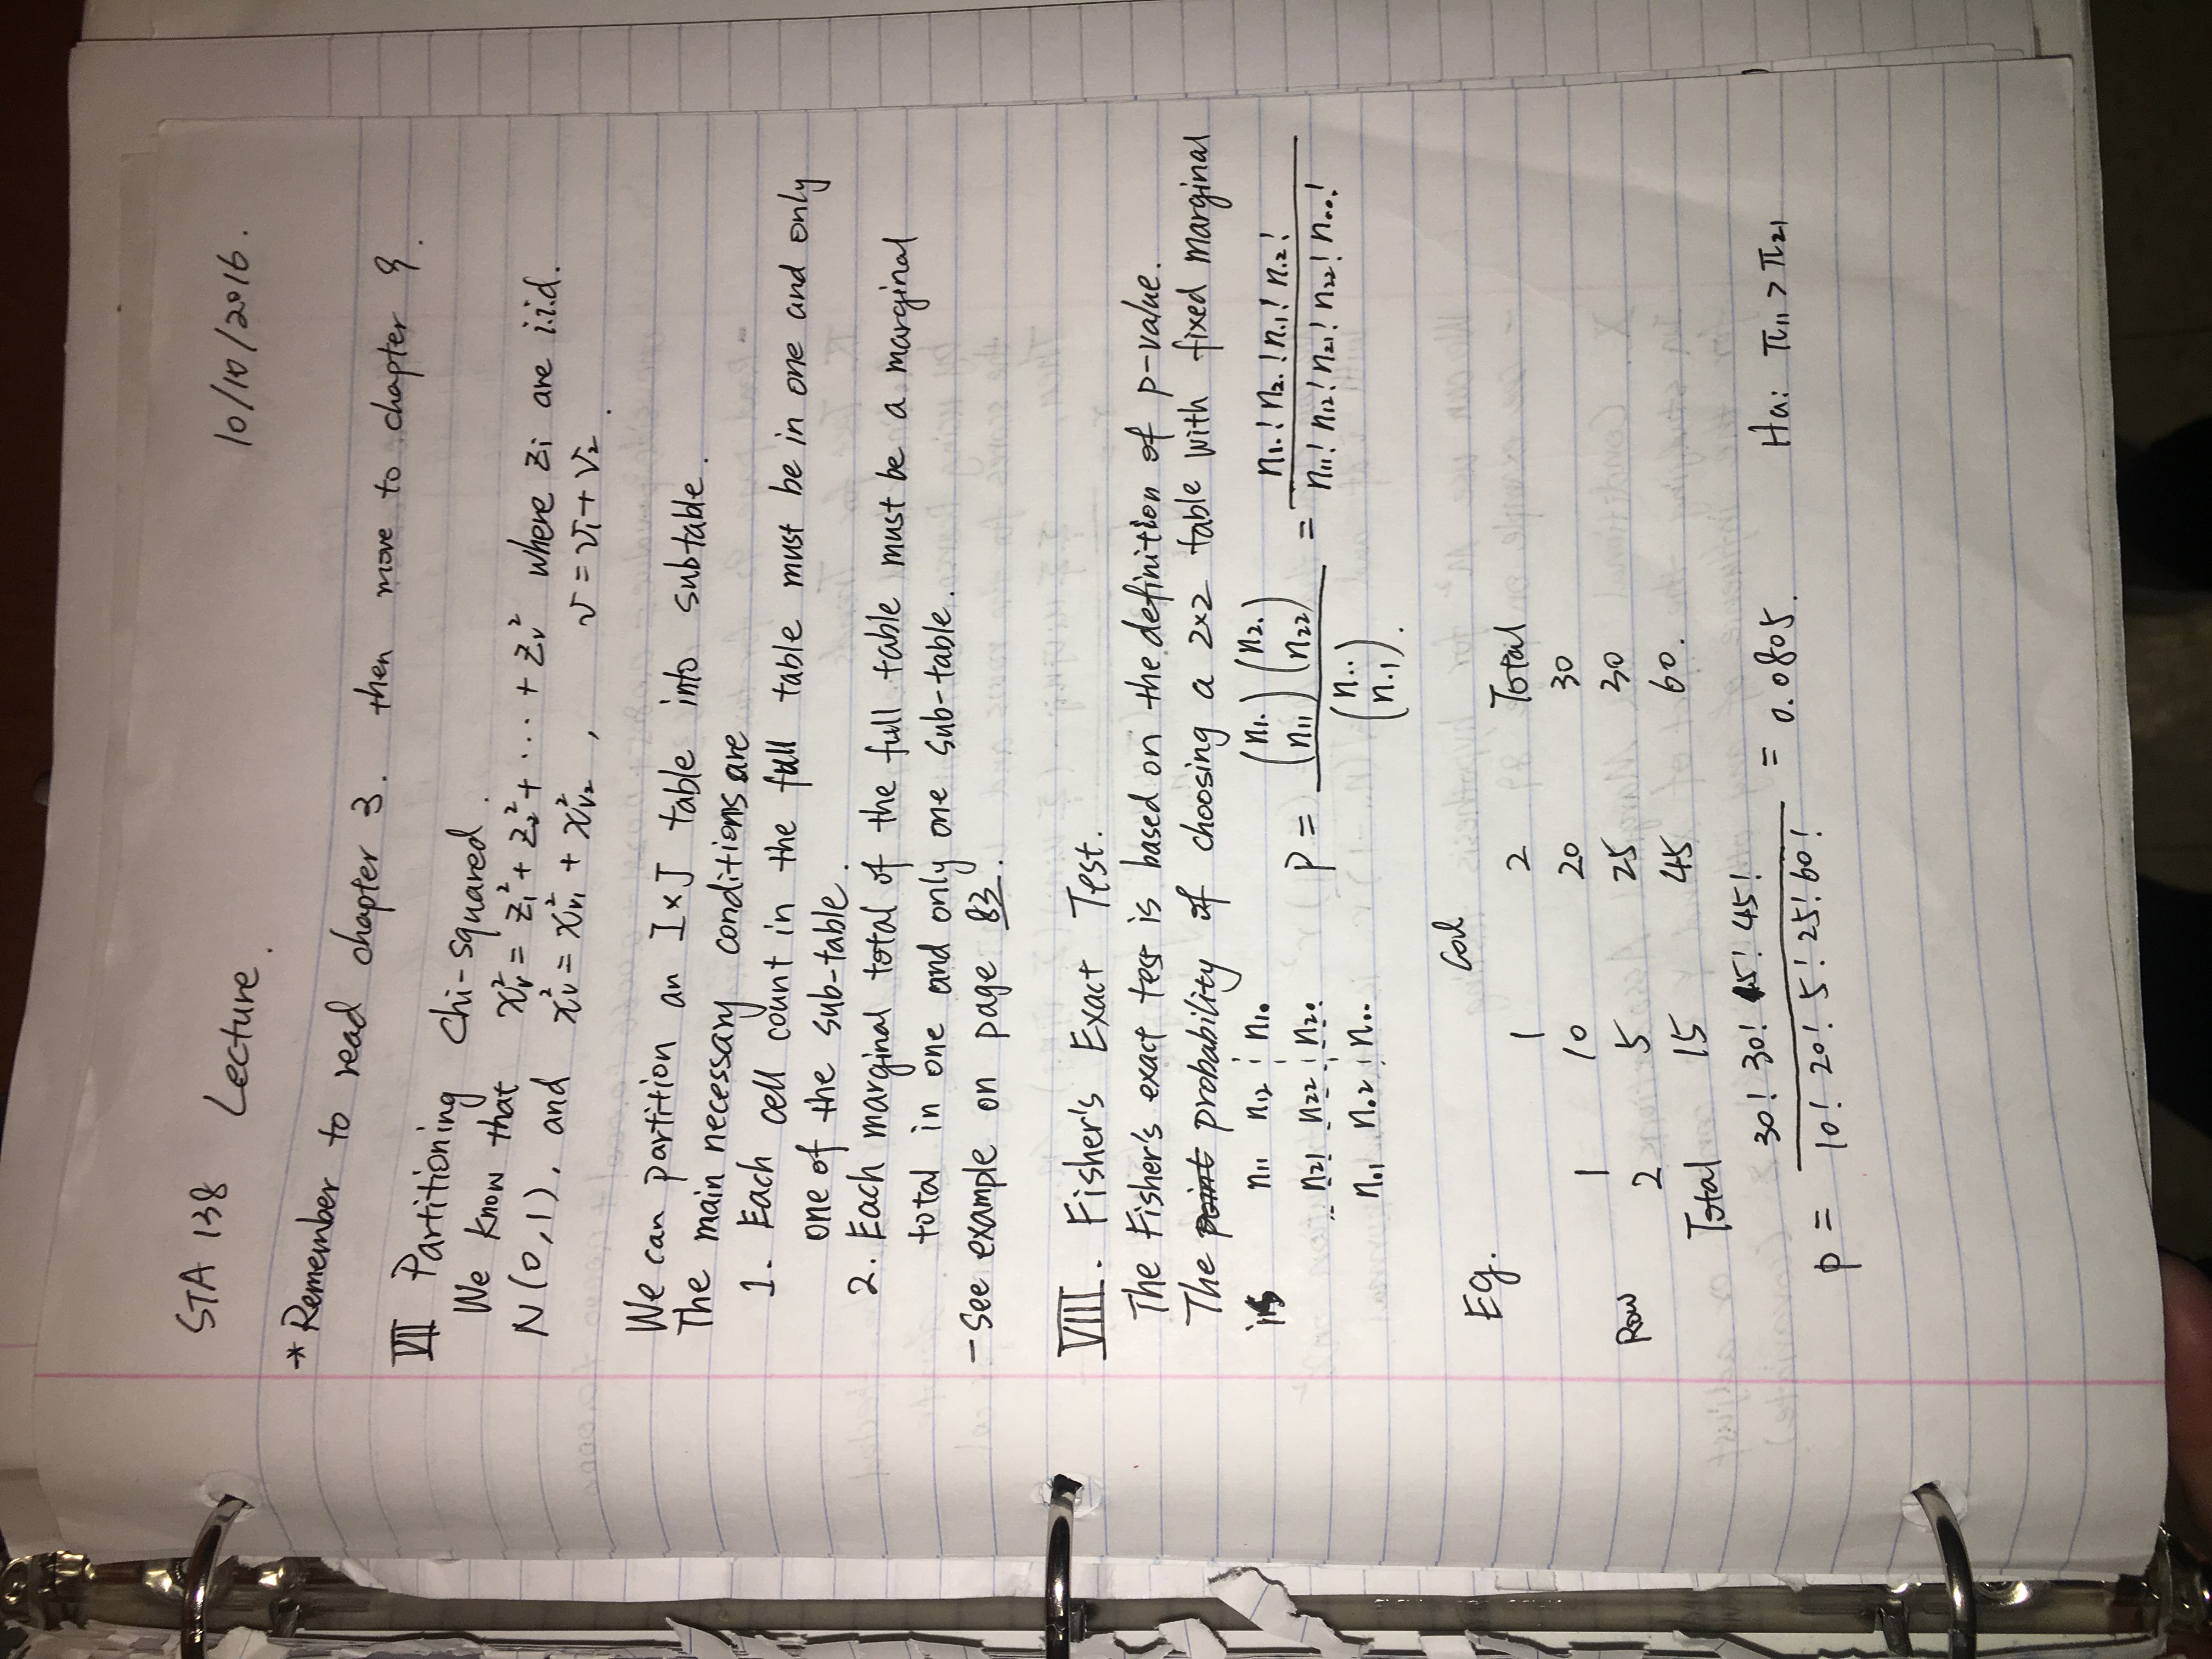 STA 138 Lecture. 10/10/2016.
* Remember to read chapter 3. then move to chapter 9.
VII Partitioning Chi-squared.
We know that χ²ᵥ = Z₁² + Z₂² + ... + Zᵥ² where Zi are i.i.d.
N(0,1), and χ²ᵥ = χ²ᵥ₁ + χ²ᵥ₂ , v = v₁ + v₂.
We can partition an I×J table into subtable.
The main necessary conditions are
1. Each cell count in the full table must be in one and only
one of the sub-table.
2. Each marginal total of the full table must be a marginal
total in one and only one sub-table.
- See example on page 83.
VIII. Fisher's Exact Test.
The Fisher's exact test is based on the definition of p-value.
The point probability of choosing a 2×2 table with fixed marginal
is n11 n12 n1. P = (n1. n11)(n2. n22) / (n.. n.1). = n1.! n2.! n.1! n.2! / n11! n12! n21! n22! n..!
n21 n22 n2.
n.1 n.2 n..
Eg. Col
1 2 Total
1 10 20 30
Row 2 5 25 30
Total 15 45 60.
p = 30! 30! 15! 45! / 10! 20! 5! 25! 60! = 0.0805. Ha: π11 > π21